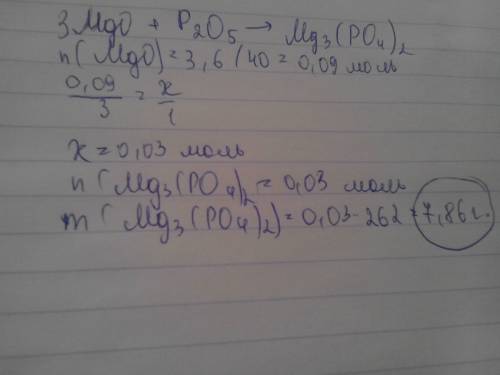 3MgO + P₂O₅ → Mg₃(PO₄)₂
n(MgO) = 3,6/40 = 0,09 моль
0,09/3 = x/1
x = 0,03 моль
n(Mg₃(PO₄)₂ = 0,03 моль
m(Mg₃(PO₄)₂) = 0,03·262 = 7,86 г.